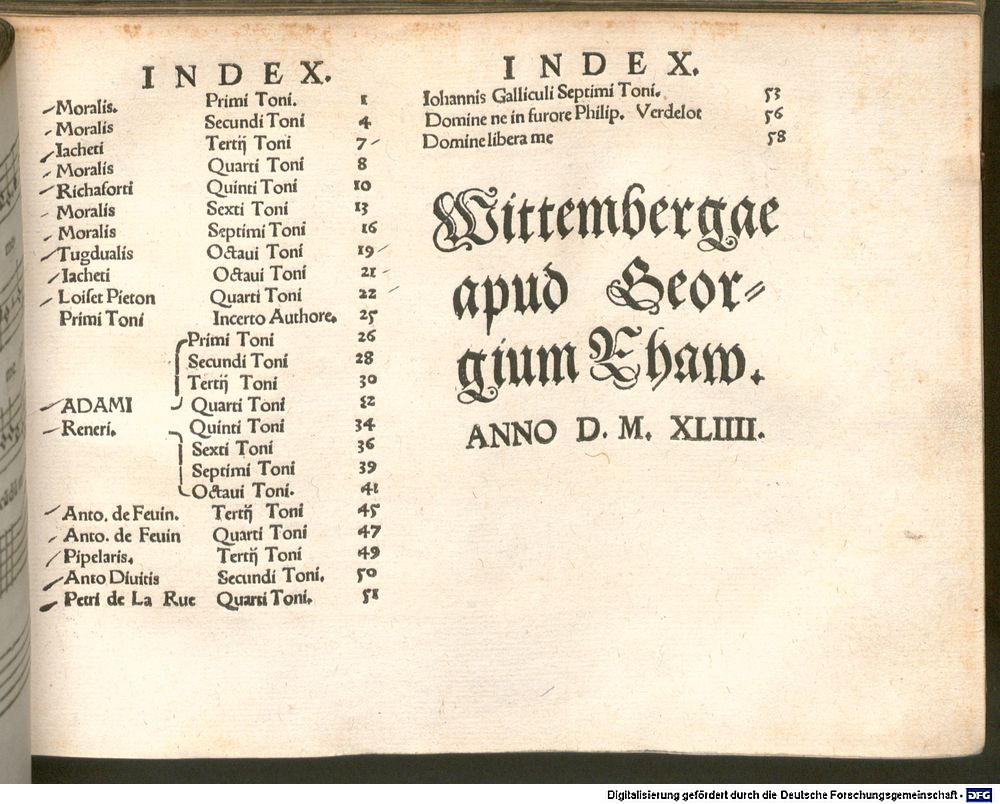 INDEX.
Moralis. Primi Toni. 1
Moralis Secundi Toni 4
Iacheti Tertij Toni 7
Moralis Quarti Toni 8
Richaforti Quinti Toni 10
Moralis Sexti Toni 13
Moralis Septimi Toni 16
Tugdualis Octaui Toni 19
Iacheti Octaui Toni 21
Loiset Pieton Quarti Toni 22
Primi Toni Incerto Authore. 25
Primi Toni 26
Secundi Toni 28
Tertij Toni 30
ADAMI Quarti Toni 32
Reneri. Quinti Toni 34
Sexti Toni 36
Septimi Toni 39
Octaui Toni. 41
Anto. de Feuin. Tertij Toni 45
Anto. de Feuin Quarti Toni 47
Pipelaris. Tertij Toni 49
Anto Diuitis Secundi Toni. 50
Petri de La Rue Quarti Toni. 51
INDEX.
Iohannis Galliculi Septimi Toni. 53
Domine ne in furore Philip. Verdelot 56
Domine libera me 58
Wittembergae
apud Geor-
gium Rhaw.
ANNO D. M. XLIIII.
Digitalisierung gefördert durch die Deutsche Forschungsgemeinschaft - DFG